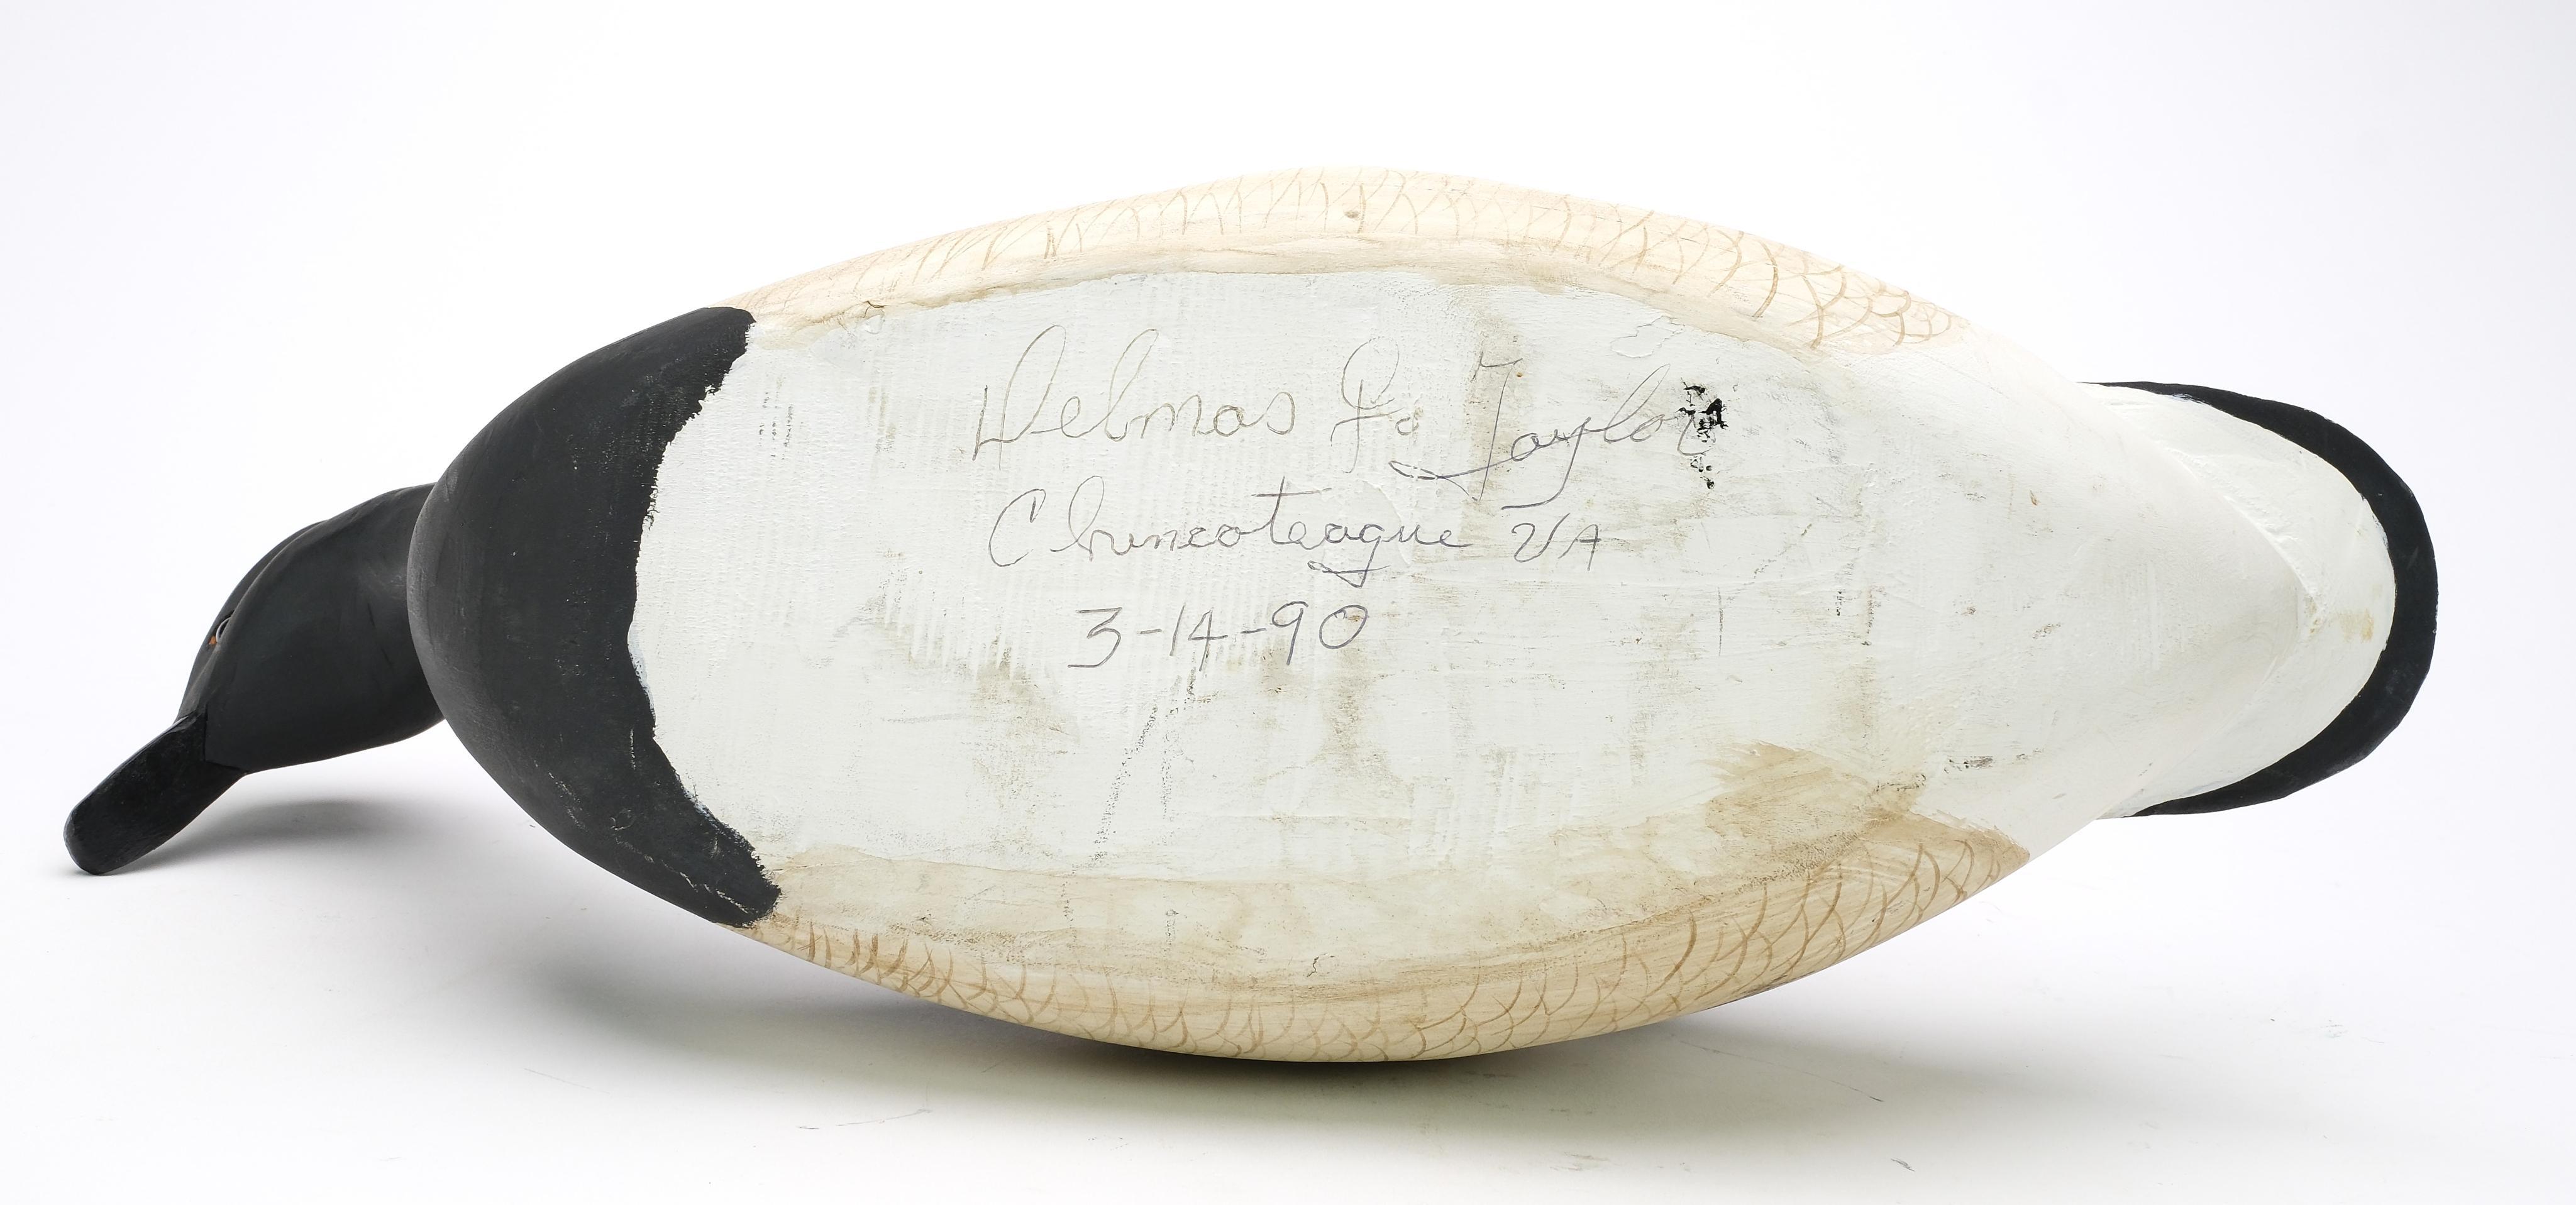 Delmas J. Taylor
Chincoteague VA
3-14-90